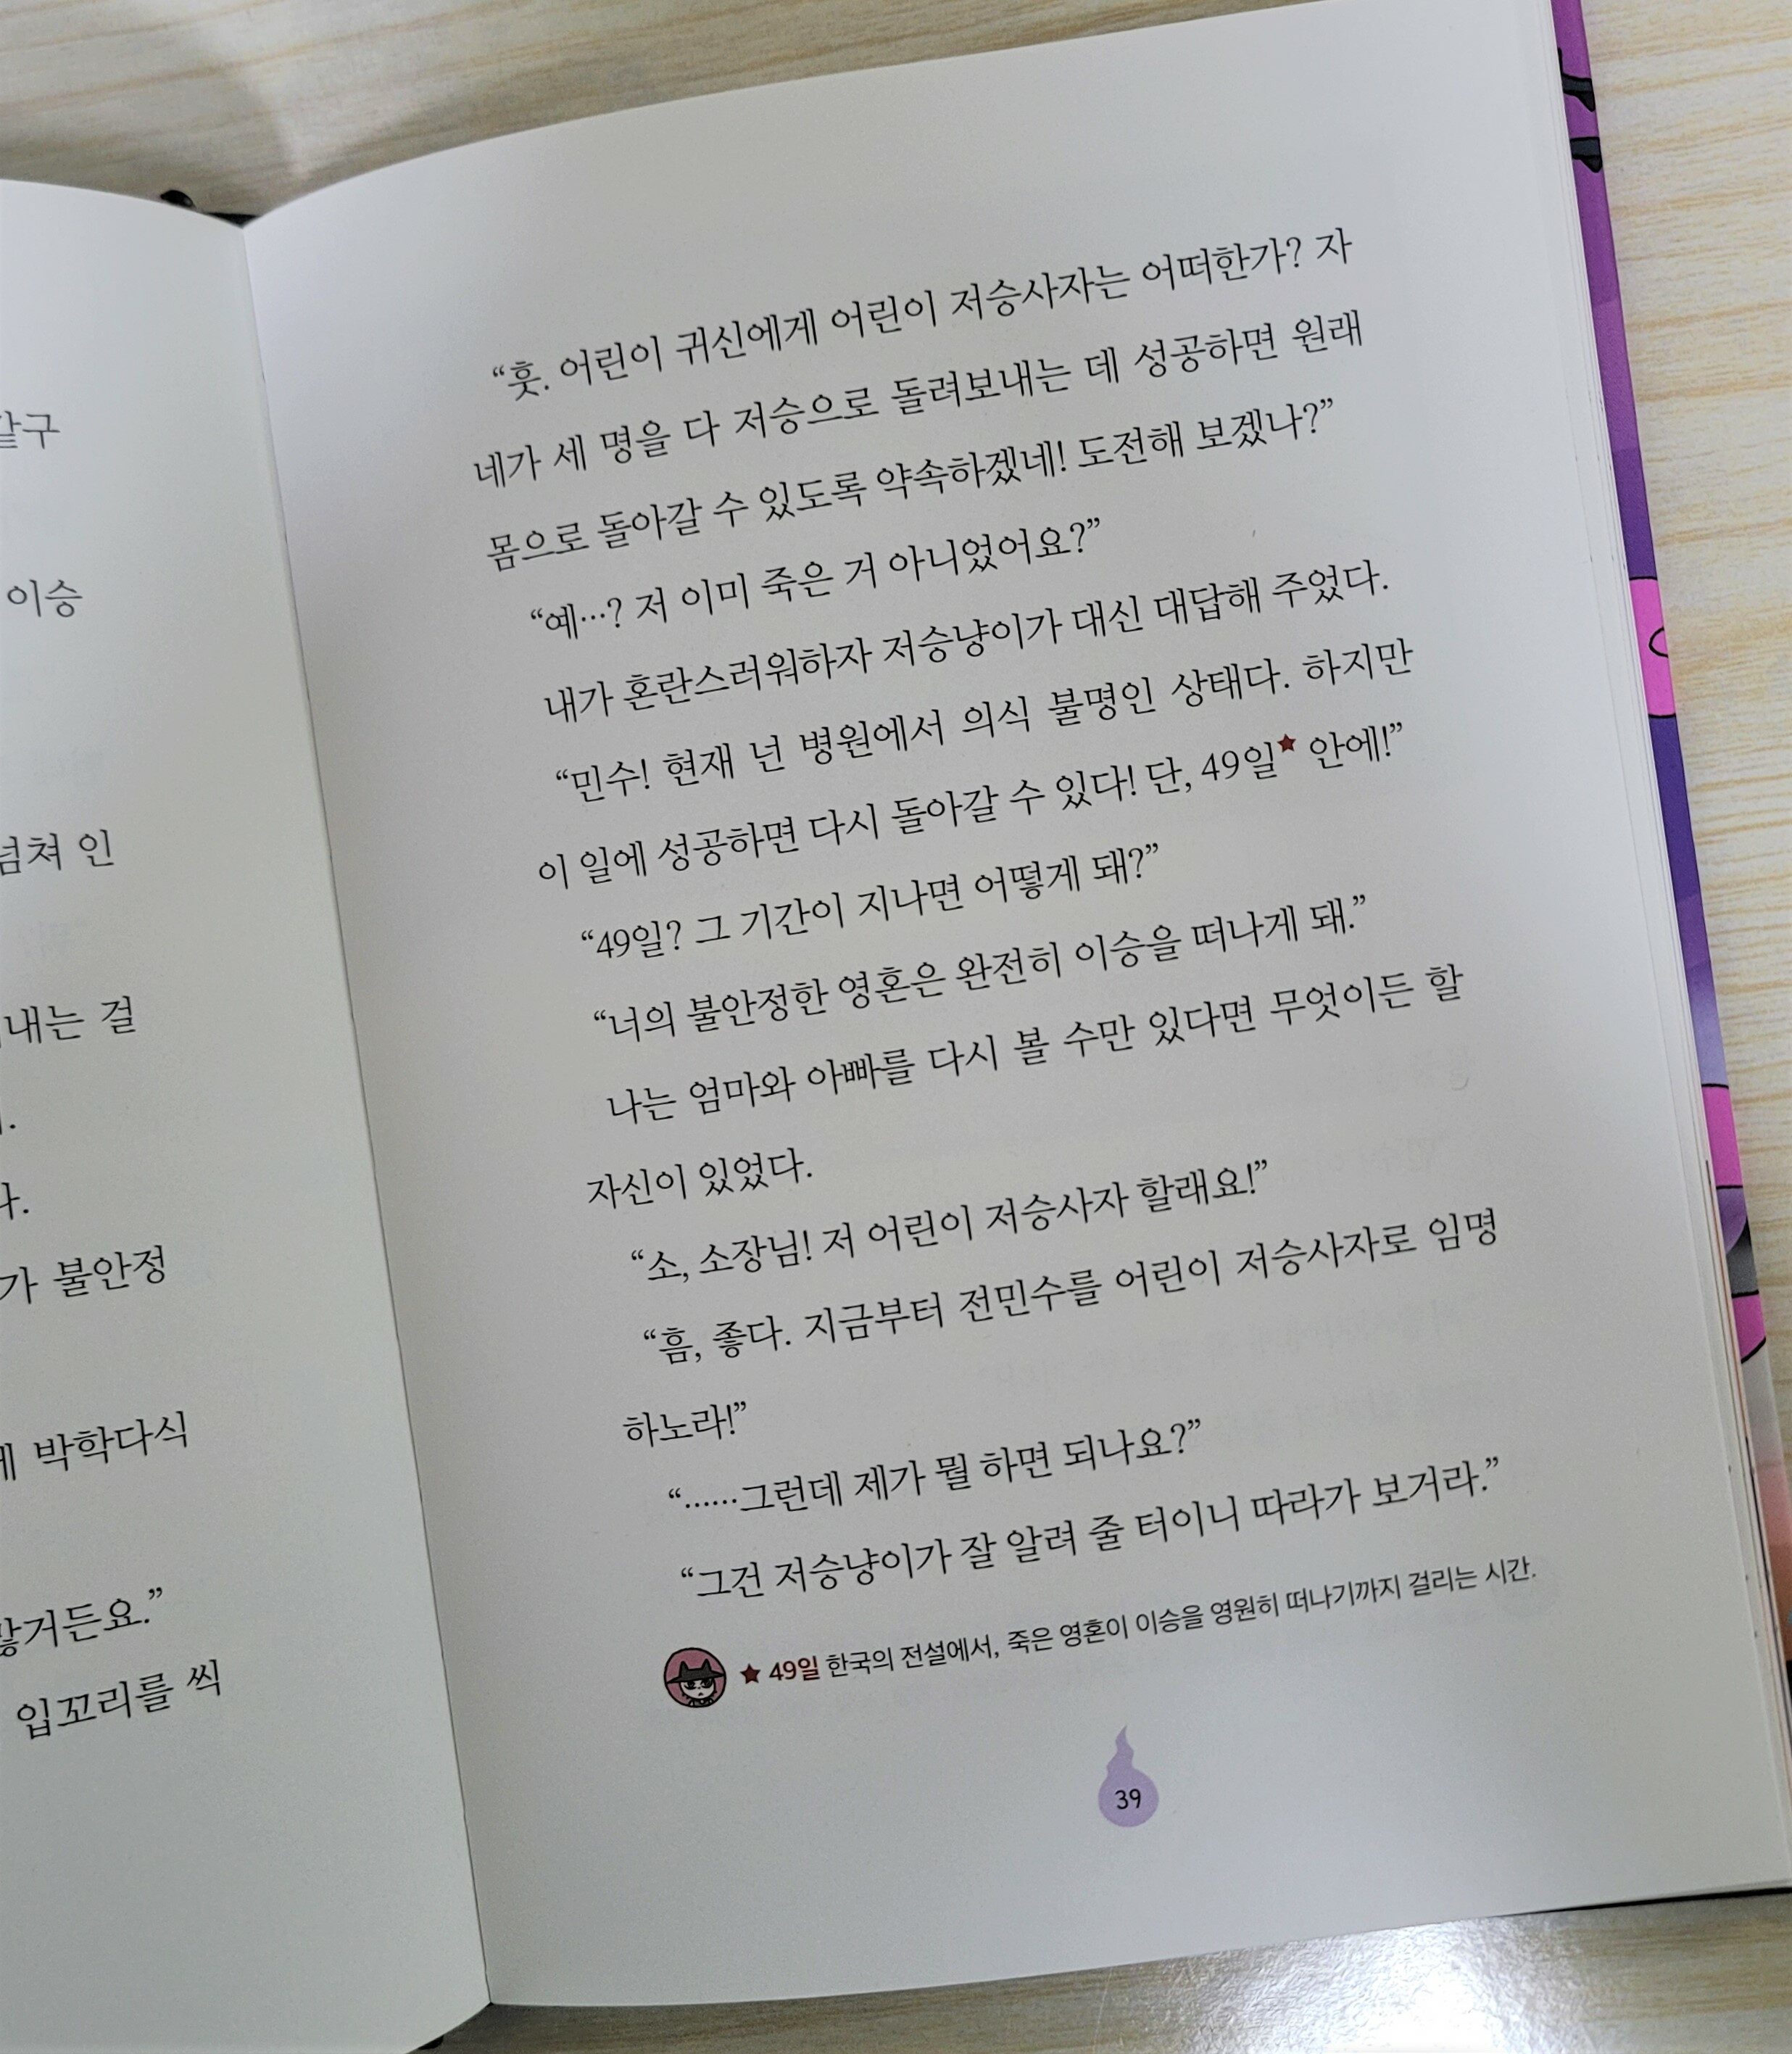 구
이승
쳐 인
내는 걸
가 불안정
박학다식
거든요.”
입꼬리를 씩
“훗. 어린이 귀신에게 어린이 저승사자는 어떠한가? 자
네가 세 명을 다 저승으로 돌려보내는 데 성공하면 원래
몸으로 돌아갈 수 있도록 약속하겠네! 도전해 보겠나?”
“예…? 저 이미 죽은 거 아니었어요?”
내가 혼란스러워하자 저승냥이가 대신 대답해 주었다.
“민수! 현재 넌 병원에서 의식 불명인 상태다. 하지만
이 일에 성공하면 다시 돌아갈 수 있다! 단, 49일★ 안에!”
“49일? 그 기간이 지나면 어떻게 돼?”
“너의 불안정한 영혼은 완전히 이승을 떠나게 돼.”
나는 엄마와 아빠를 다시 볼 수만 있다면 무엇이든 할
자신이 있었다.
“소, 소장님! 저 어린이 저승사자 할래요!”
“흠, 좋다. 지금부터 전민수를 어린이 저승사자로 임명
하노라!”
“……그런데 제가 뭘 하면 되나요?”
“그건 저승냥이가 잘 알려 줄 터이니 따라가 보거라.”
★ 49일 한국의 전설에서, 죽은 영혼이 이승을 영원히 떠나기까지 걸리는 시간.
39